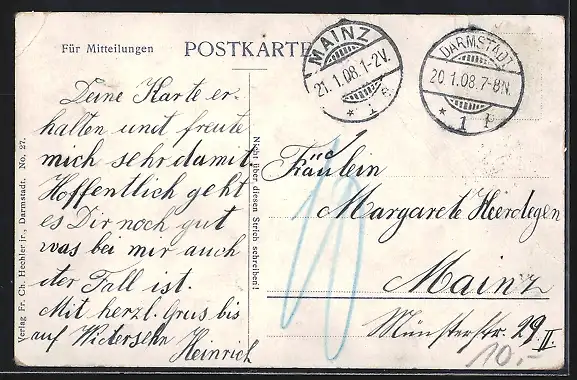 Für Mitteilungen
POSTKARTE
MAINZ
21.1.08.1-2V.
* 1 e
DARMSTADT
20.1.08.7-8N.
* 1 f
Deine Karte er-
halten und freute
mich sehr damit
Hoffentlich geht
es Dir noch gut
was bei mir auch
der Fall ist.
Mit herzl. Grus bis
auf Widersehn
Heinrich
Verlag Fr. Ch. Hechler jr., Darmstadt. No. 27.
Nicht über diesen Strich schreiben!
Fräulein
Margarete Heerdegen
Mainz
Münsterstr. 29 II.
10.-